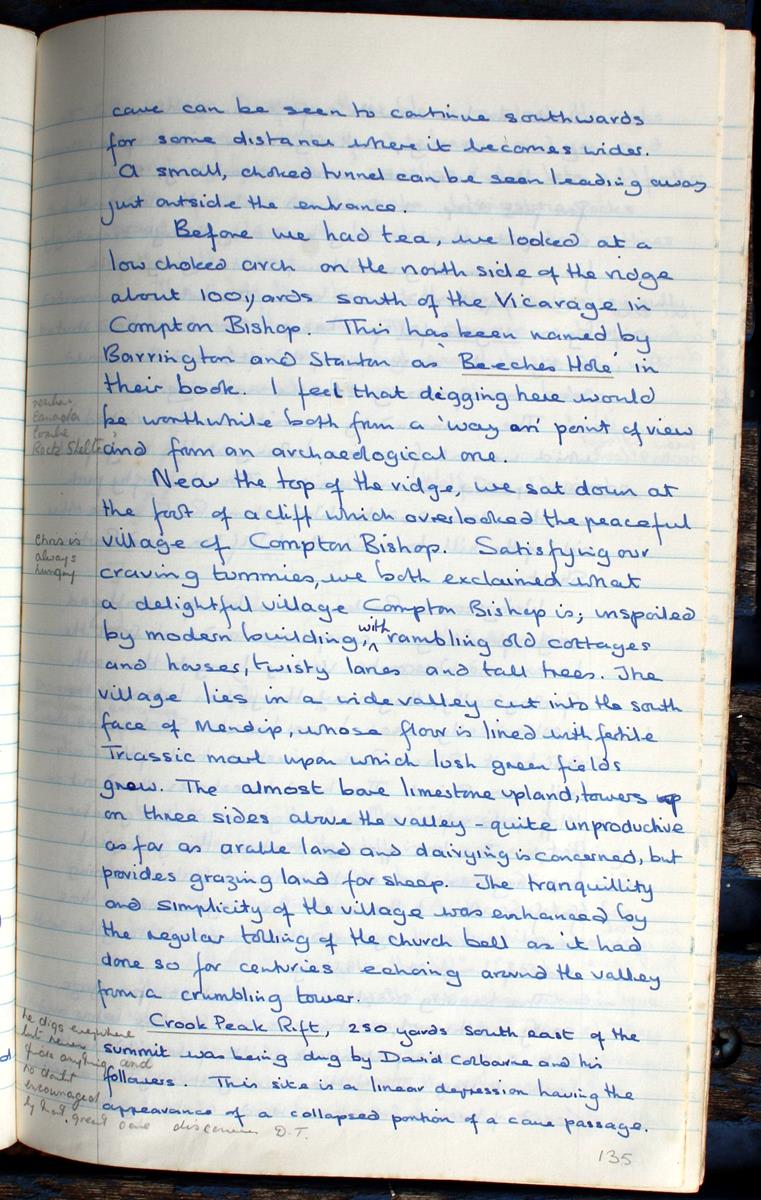 cave can be seen to continue southwards
for some distance where it becomes wider.
A small, choked tunnel can be seen leading away
just outside the entrance.
Before we had tea, we looked at a
low choked arch on the north side of the ridge
about 100 yards south of the Vicarage in
Compton Bishop. This has been named by
Barrington and Stanton as 'Beeches Hole' in
their book. I feel that digging here would
be worthwhile both from a 'way on' point of view
and from an archaeological one.
Rock Shelter
Near the top of the ridge, we sat down at
the foot of a cliff which overlooked the peaceful
village of Compton Bishop. Satisfying our
craving tummies, we both exclaimed what
a delightful village Compton Bishop is; unspoiled
by modern building, with rambling old cottages
and houses, twisty lanes and tall trees. The
village lies in a wide valley cut into the south
face of Mendip, whose floor is lined with fertile
Triassic marl upon which lush green fields
grow. The almost bare limestone upland, towers up
on three sides above the valley - quite unproductive
as far as arable land and dairying is concerned, but
provides grazing land for sheep. The tranquillity
and simplicity of the village was enhanced by
the regular tolling of the church bell as it had
done so for centuries echoing around the valley
from a crumbling tower.
Chris is
always
hungry
Crook Peak Rift, 250 yards south east of the
summit was being dug by David Colbourne and his
followers. This site is a linear depression having the
appearance of a collapsed portion of a cave passage.
he digs everywhere
but never
finds anything and
no doubt
encouraged
by that great cave discoverer D.T.
135